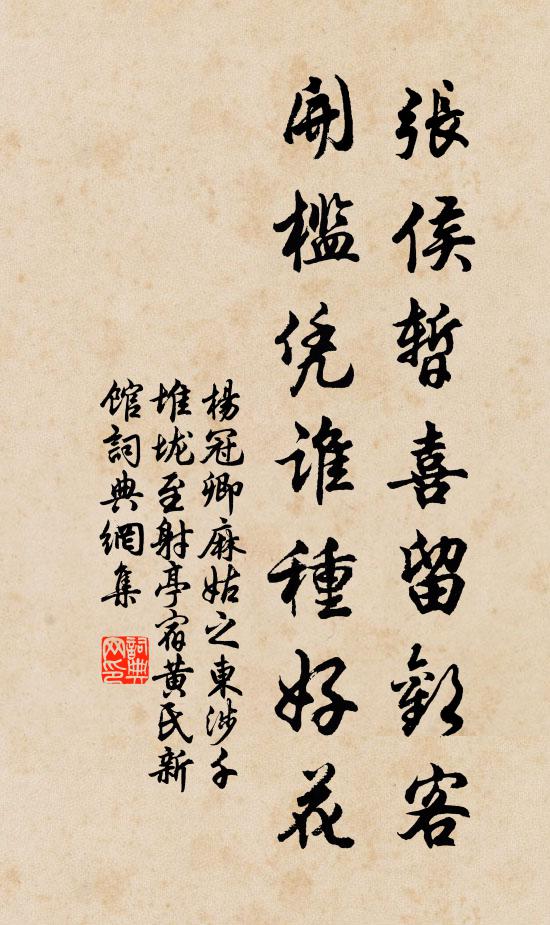 張侯暫喜留歡客
開檻凭誰種好花
楊冠卿麻姑之東涉千
堆垅至射亭宿黄民新
館詞典網集
詞典网印